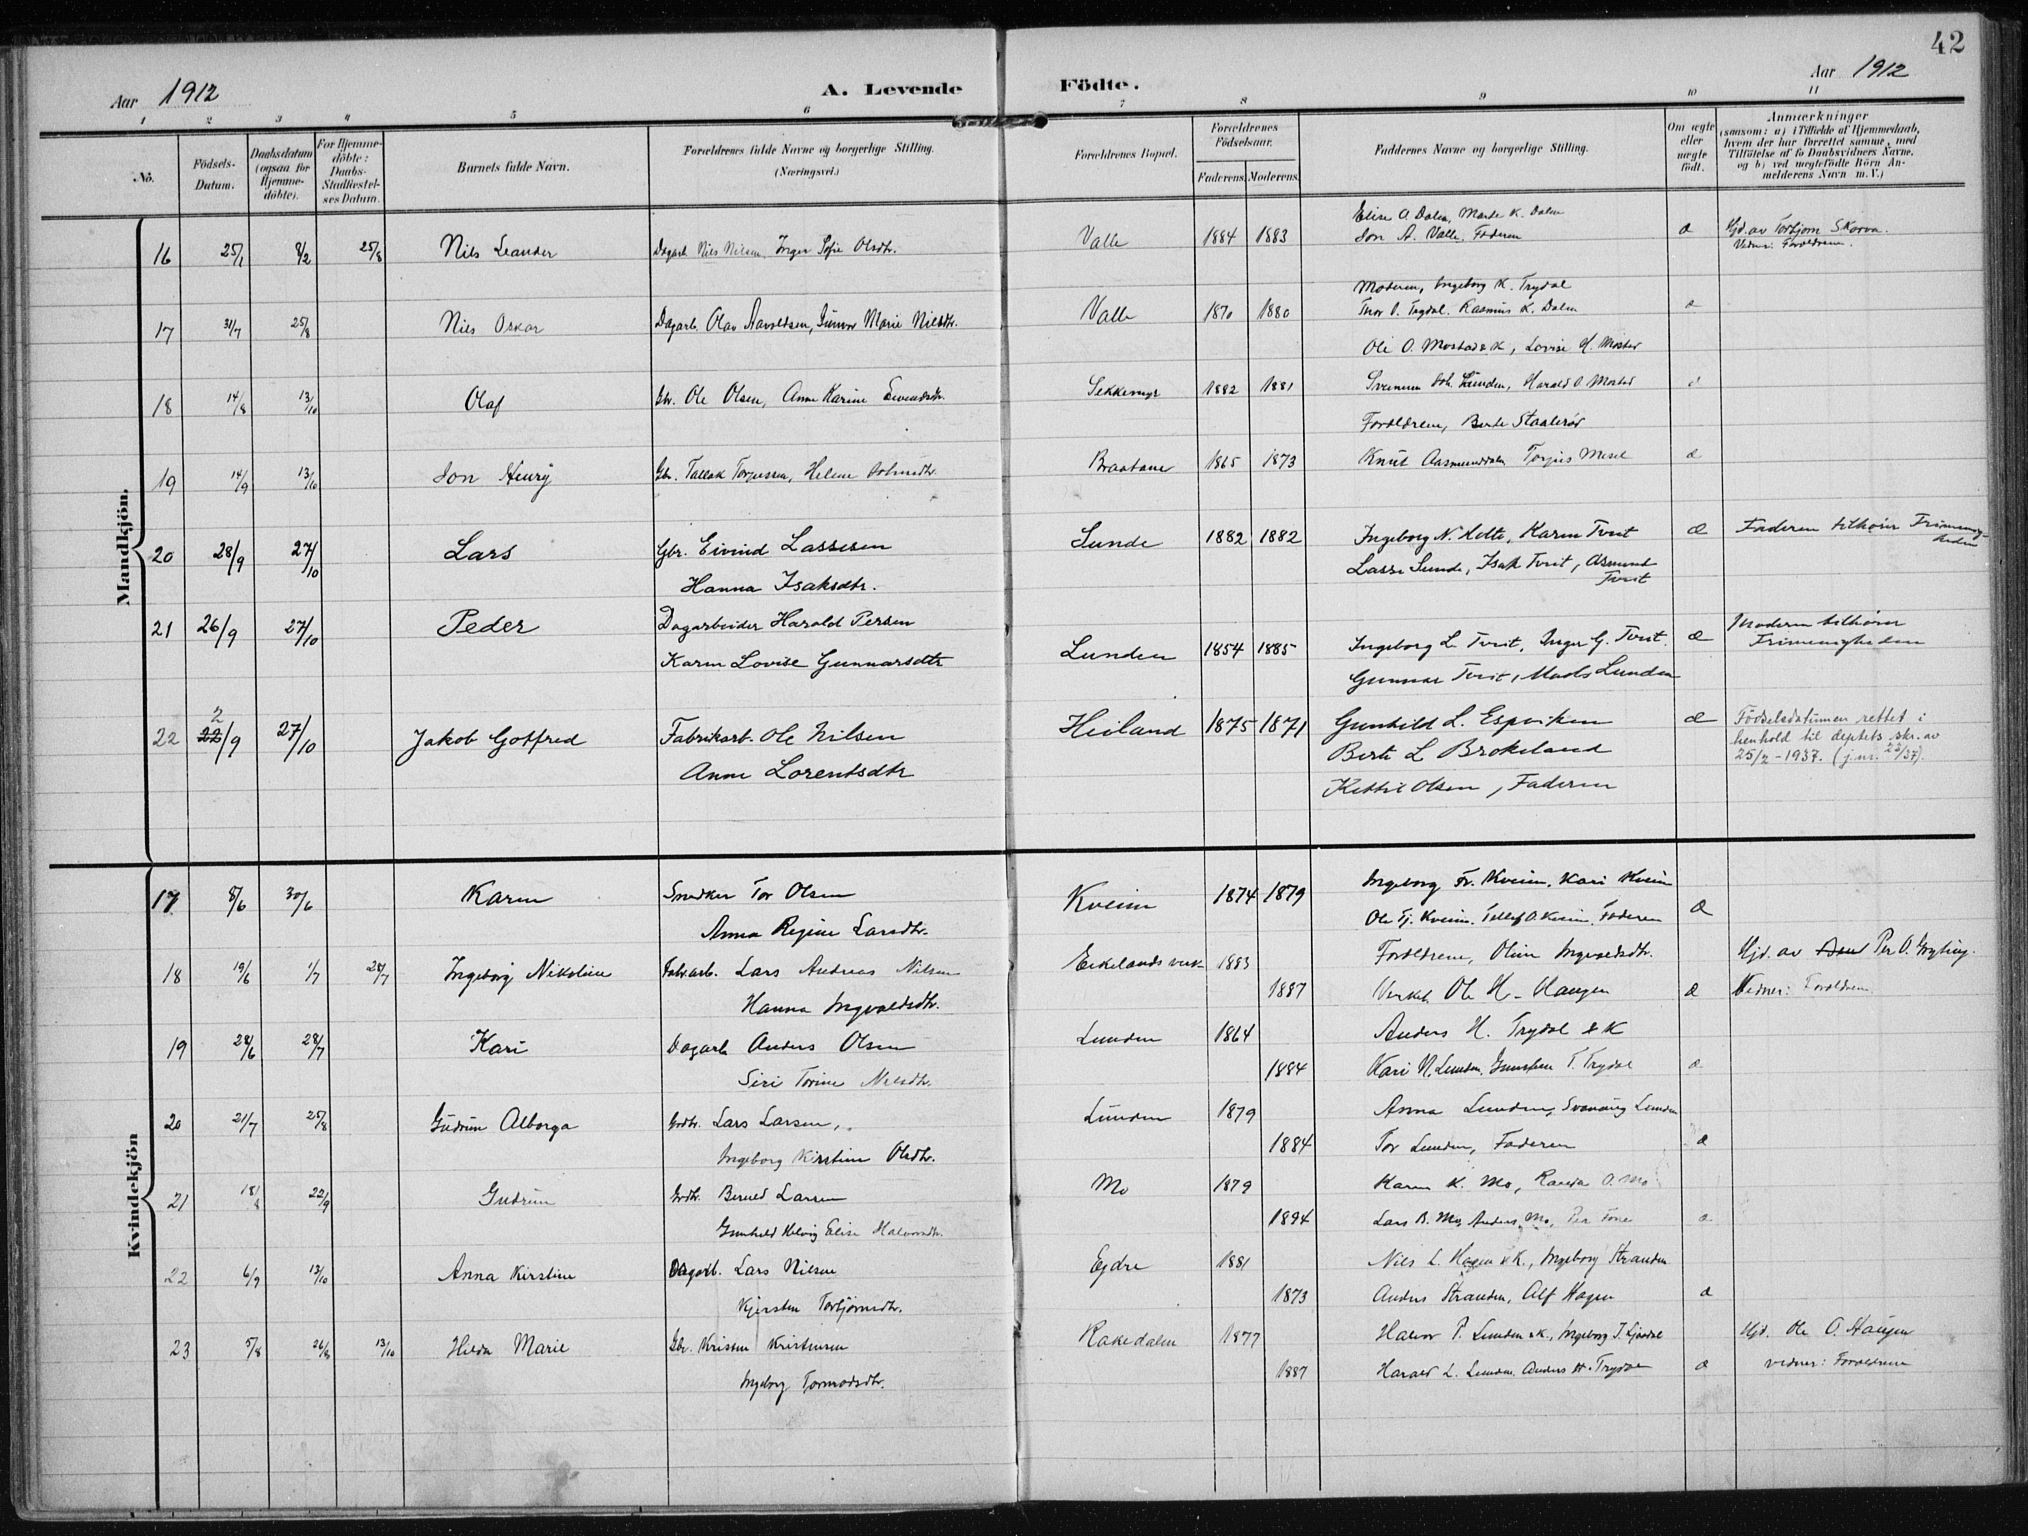 42
Aar 1912
A. Levende Födte.
Aar 1912
1 2 3 4 5 6 7 8 9 10 11
No.
Födsels-Datum.
Daabsdatum (ogsaa for Hjemme-döbte).
For Hjemme-döbte: Daabs-Stadfæstel-ses Datum.
Barnets fulde Navn.
Forældrenes fulde Navne og borgerlige Stilling. (Næringsvei.)
Forældrenes Bopæl.
Forældrenes Födselsaar.
Faderens. Moderens.
Faddernes Navne og borgerlige Stilling.
Om ægte eller uægte födt.
Anmærkninger
(saasom: a) i Tilfælde af Hjemmedaab, hvem der har forrettet samme, med Tilföielse af to Daabsvidners Navne, og b) ved uægtefödte Börn Anmelderens Navn m. V.)
Mandkjön.
Elise A Dalen, Marte K. Dalen
16 25/1 8/2 25/8 Nils Leander Dagarb. Nils Nilsen, Inger Sofie Olsdtr. Valle 1884 1883 Jon A. Valle. Faderen æ Hjd. av Torbjørn Skorva.
Vidner: Forældrene.
Moderen, Ingeborg K. Trydal
17 31/7 25/8 Nils Oskar Dagarb. Olav Aavoldsen, Gunvor Marie Nilsdtr. Valle 1870 1880 Thor O. Trydal. Rasmus K. Dalen æ
Ole O. Mostad & K, Lovise H. Mostad
18 14/8 13/10 Olaf Gbr. Ole Olsen, Anne Karine Eivindsdtr. Sekkemyr 1882 1881 Lunden, Harald O. Mostad æ
Forældrene, Berte Staalerød
19 14/9 13/10 Jon Henry Gbr. Tallak Torjussen, Helene Braatane 1865 1873 Knut Aasmunddalen Torjus Mesel æ
20 28/9 27/10 Lars Gbr. Eivind Lassesen Lunde 1882 1882 Ingeborg N. Helte, Karen Tveit æ Faderen tilhører Frimenigheden
Hanna Isaksdtr. Lasse Lunde, Isak Tveit, Asmund Tveit
21 26/9 27/10 Peder Dagarbeider Harald Persen Lunden 1854 1885 Ingeborg L. Tveit, Inger G. Tveit. æ Moderen tilhører Frimenigheden
Karen Lovise Gunnarsdtr Gunnar Tveit, Mads Lunden
22 22/9 2 27/10 Jakob Gotfred Fabrikarb. Ole Nilsen Heiland 1875 1871 Gunhild L. Espeviken æ Födselsdatumen rettet i
Anne Lorentsdtr Berte L Brokeland henhold til deptets skr. av
Kittil Olsen, Faderen 25/2-1937. (j.nr. 22/37).
Kvindekjön
17 8/6 30/6 Karen Snedker Tor Olsen Kveim 1874 1879 Ingeborg Fr. Kveim, Kari Kveim
Anna Regine Larsdtr. Ole Tj. Kveim. Tellef O. Kveim. Faderen æ
18 19/6 1/7 28/7 Ingeborg Nikoline Fabrarb. Lars Andreas Nilsen Eikelands verk 1883 Forældrene, Oline Ingvaldsdtr. Hjd. av Per O. Gryting.
Hanna Ingvaldsdtr. 1887 Ole H. Haugen æ Vidner: Forældrene
19 28/6 28/7 Kari Dagarb Anders Olsen Lunden 1864 Anders H. Trydal & K
Siri Torine Nilsdtr. 1884 Kari N. Lunden, T. Trydal æ
20 21/7 25/8 Gudrun Alborga Lars Larsen, Lunden 1879 Anna Lunden, Svanaug Lunden
Ingeborg Kirstine Olsdtr. 1884 Tor Lunden, Faderen æ
21 18/8 22/9 Gudrun Berned Larsen Mo 1879 Karen K. Mo, O. Mo
Gunhild Helvig Elise Halvorsdtr. 1894 Lars B. Mo, Anders Mo, æ
22 6/9 13/10 Anna Kirstine Dagarb. Lars Nilsen Egdre 1881 Nils L. Hagen & K., Ingeborg Stranden
Kjersten Torbjörnsdtr. 1873 Anders Stranden, Alf Hagen æ
23 5/8 26/8 13/10 Hilda Marie Gbr. Kristen Kristensen Rakedalen 1877 Halvor P. Lunden & K., Ingeborg Hjd. Ole O. Haugen
Ingeborg Tormodsdtr. 1887 Harald L. Lunden, Anders H. Trydal æ vidner: Forældrene